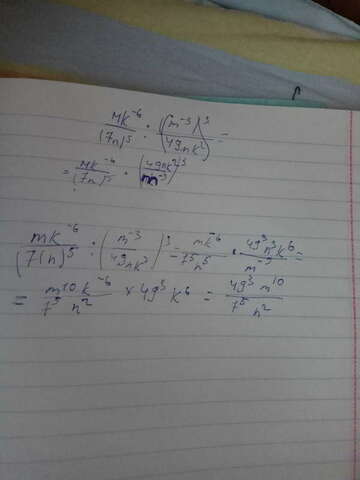 mk⁻⁶/(7n)⁵ : ((m⁻³)/(49nk²))³ =
= mk⁻⁶/(7n)⁵ · (49nk²/m⁻³)³
mk⁻⁶/(7(n)⁵ : (m⁻³/49nk²)³ = mk⁻⁶/7⁵n⁵ * 49³n³k⁶/m⁻⁹ =
= m¹⁰k⁻⁶/7⁵n² × 49³k⁶ = 49³m¹⁰/7⁵n²